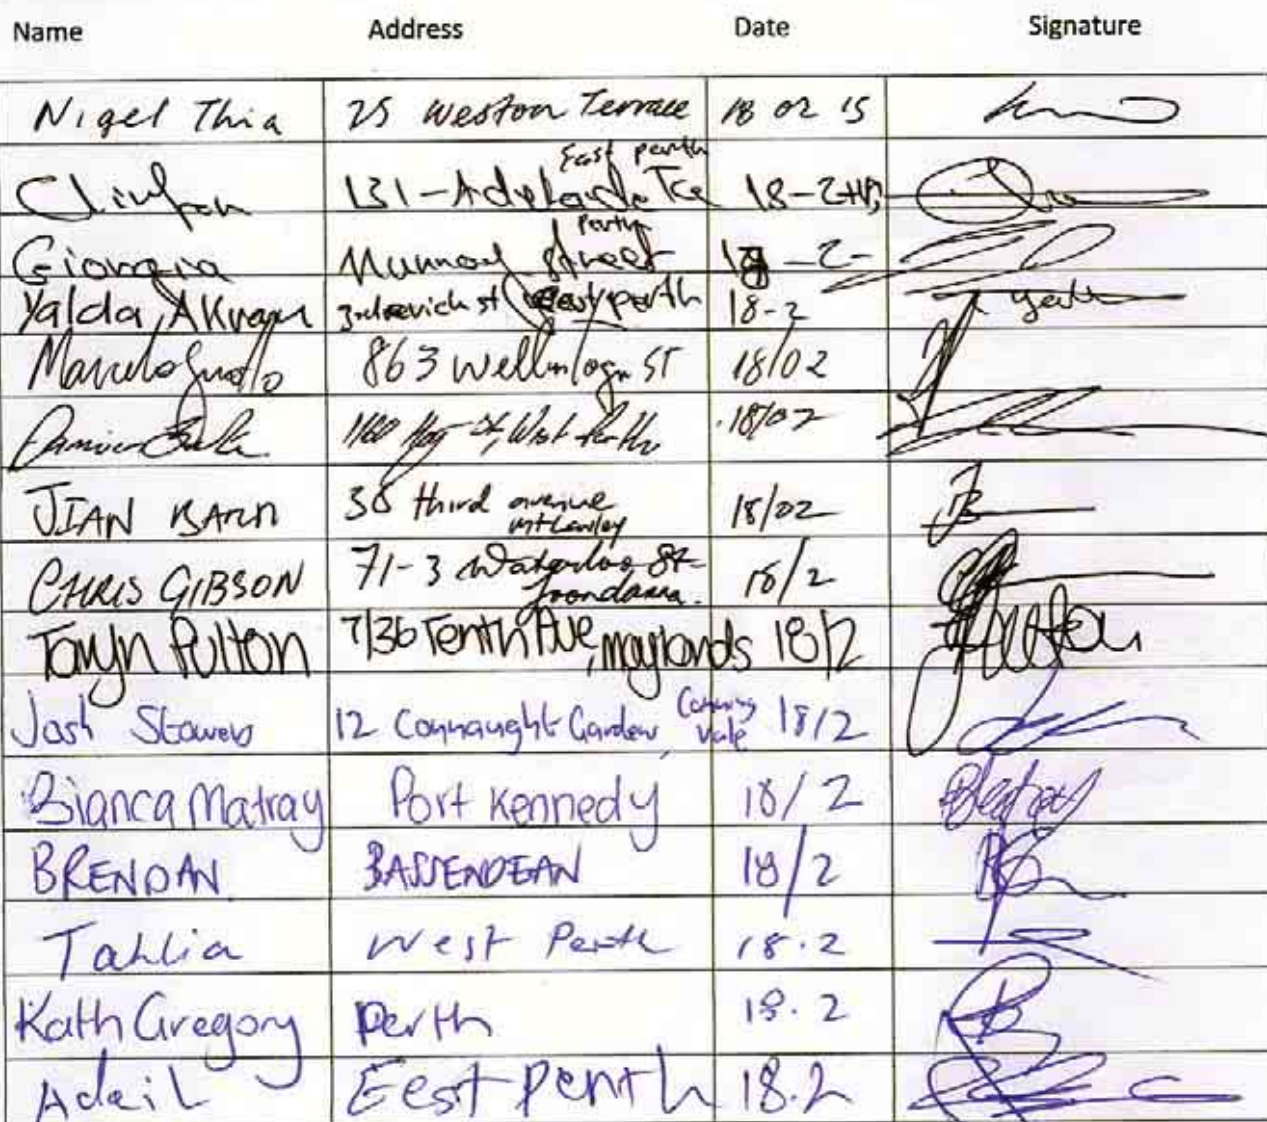 Name Address Date Signature
Nigel Thia 25 Weston Terrace 18 02 15
East Perth
Clinton 131-Adelaide Tce 18-2
Perth
Giorgia Murray Street 18-2-
Yalda, Akram st East perth 18-2
Marcelo 863 Wellington ST 18/02
Damien 1160 Hay St, West Perth 18/02
JIAN 38 third avenue 18/02
Mt Lawley
CHRIS GIBSON 71-3 Waterloo St 18/2
Joondanna.
Taryn Pulton 7/36 Tenth Ave, maylands 18/2
Josh Stowers 12 Connaught Garden, Canning Vale 18/2
Bianca Matray Port Kennedy 18/2
BRENDAN BASSENDEAN 18/2
Tahlia West Perth 18.2
Kath Gregory Perth 18.2
Adail Eest Penth 18.2